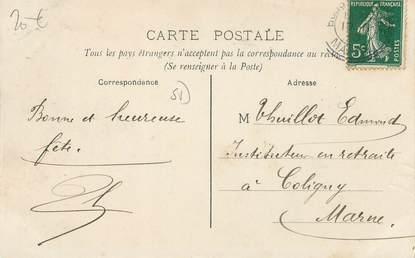 20 €
CARTE POSTALE
Tous les pays étrangers n'acceptent pas la correspondance au
(Se renseigner à la Poste)
RÉPUBLIQUE FRANÇAISE
5c
POSTES
Correspondance
51
Bonne et heureuse
fête.
Adresse
M Thuillot Edmond
Instituteur en retraite
à Coligny
Marne.